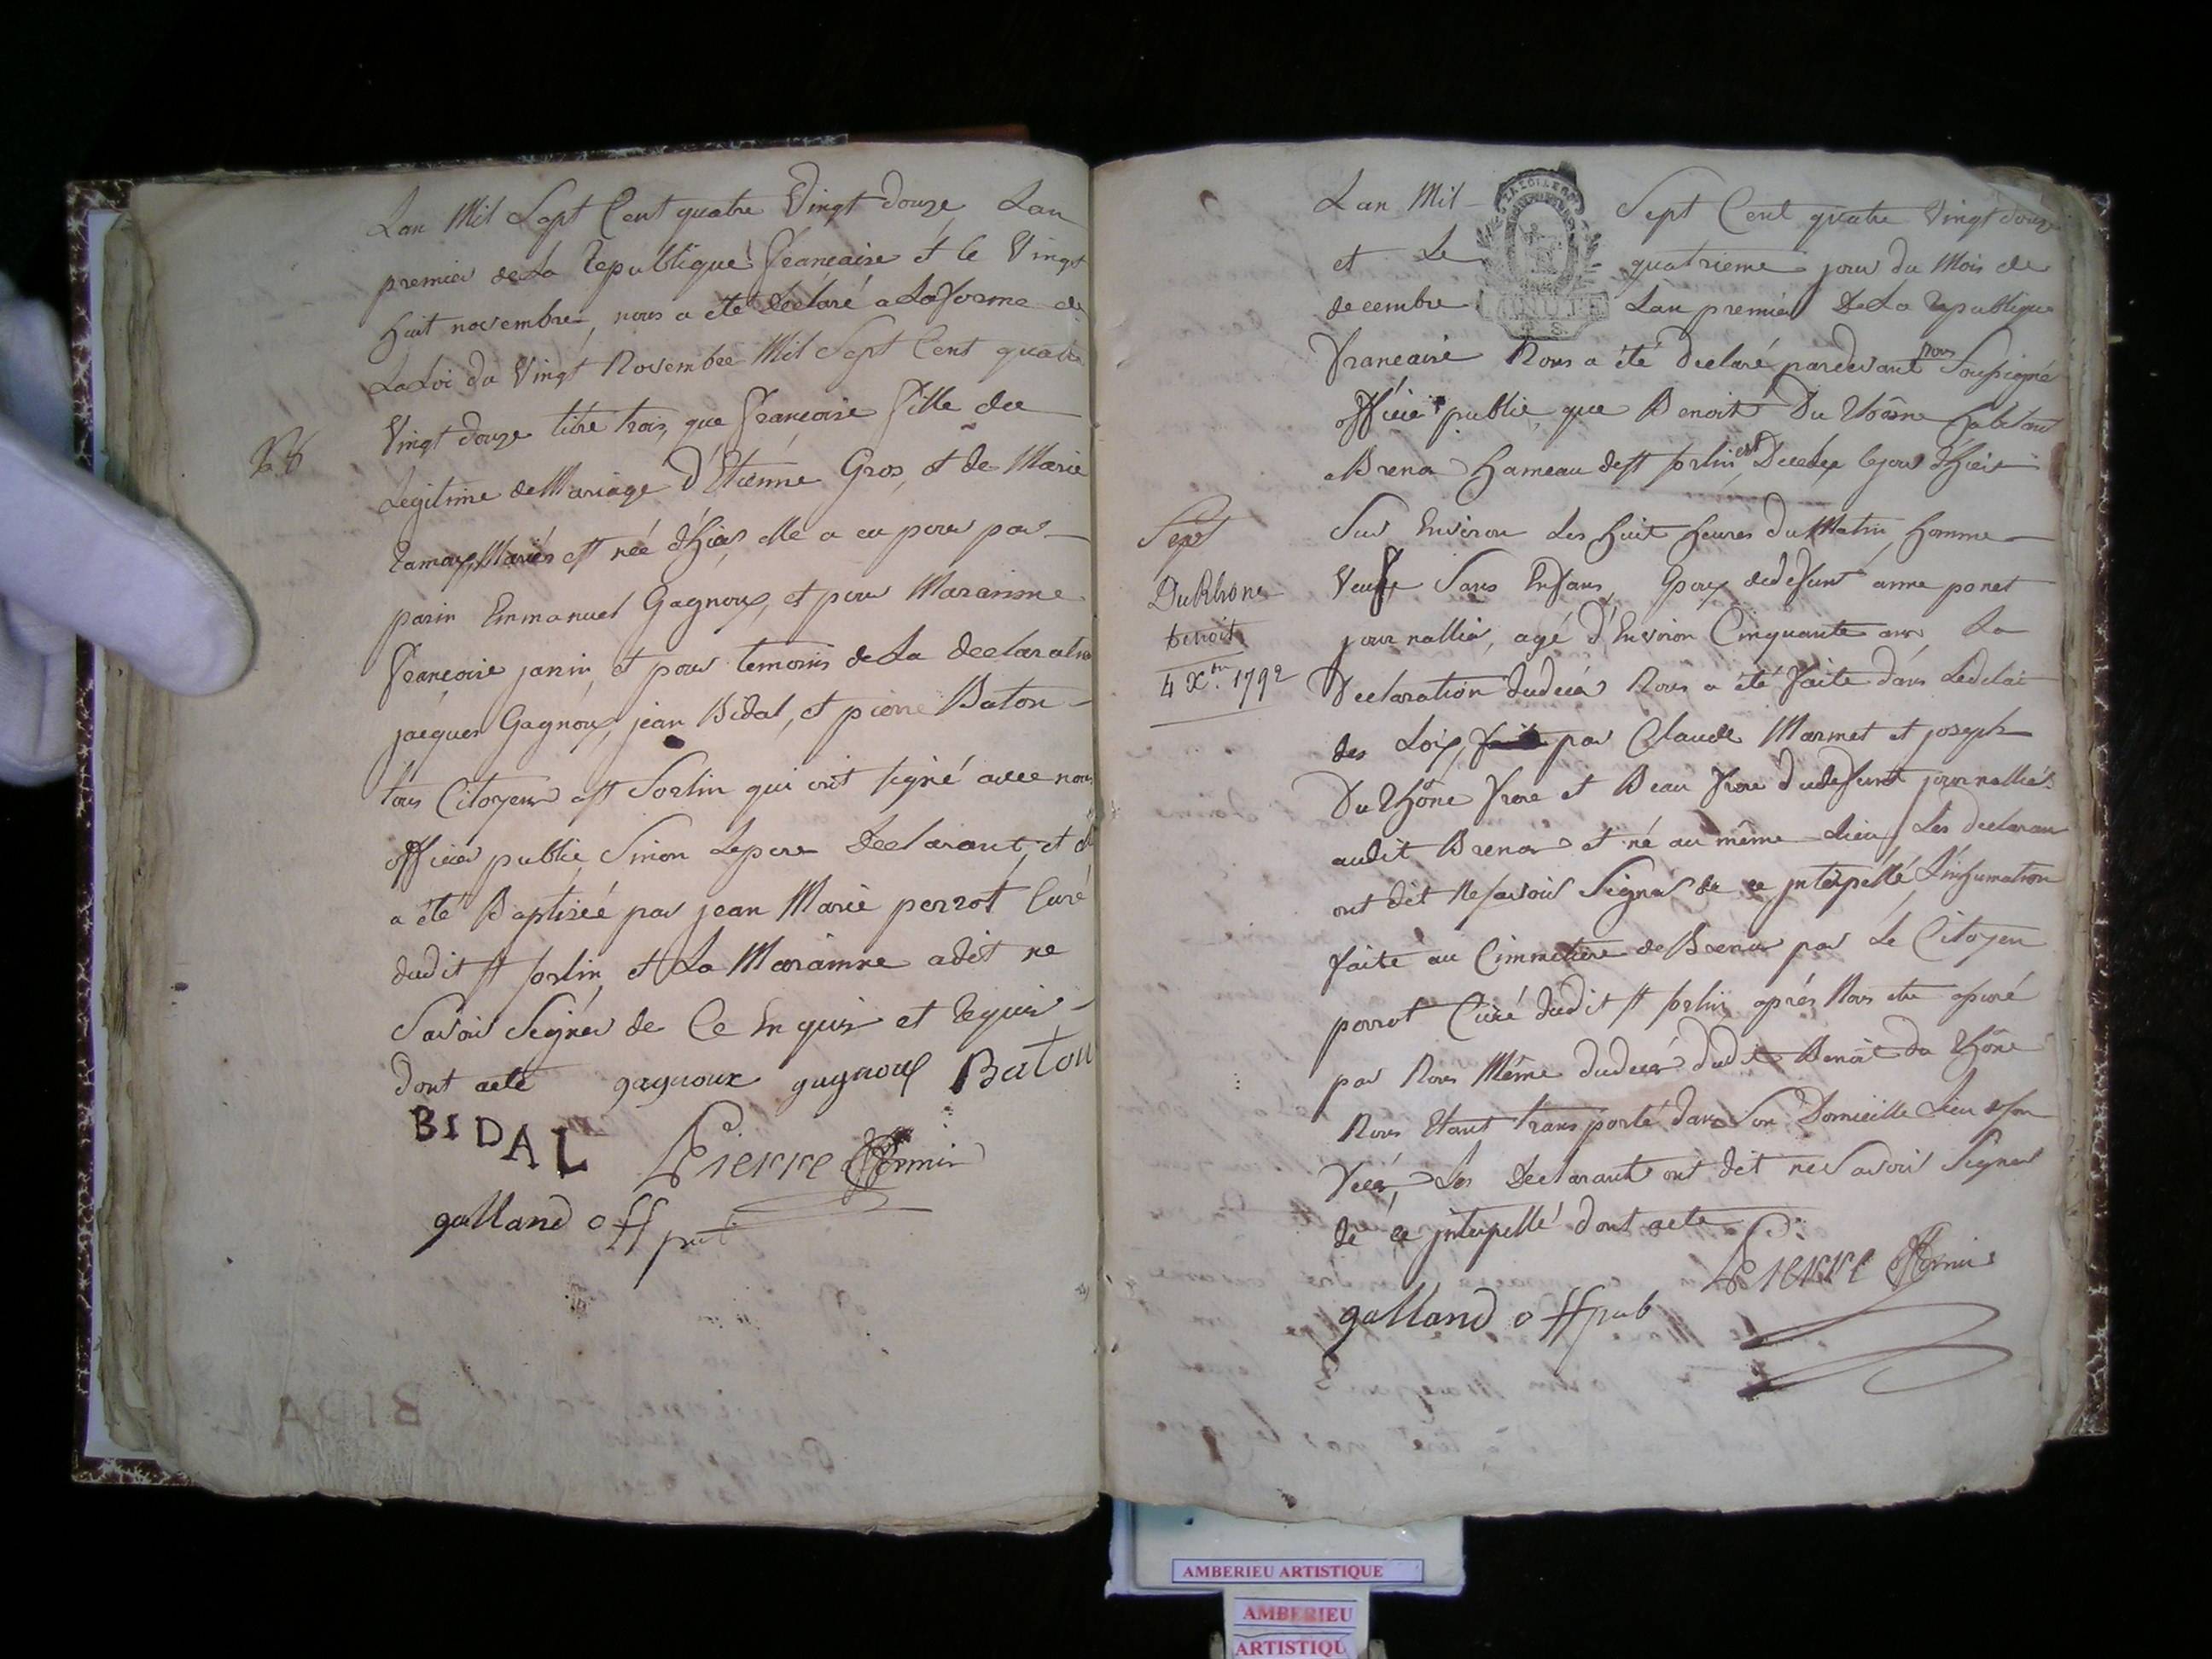 Lan Mil Sept Cent quatre Vingt douze Lan
premier de La Republique francaise et le Vingt
huit novembre, nous a eté declaré a La forme de
La Loi du Vingt Novembre Mil Sept Cent quatre
Vingt douze titre trois, que francoise fille de
Legitime de Mariage d'Etienne Gros, et de Marie
Ramoux Mariés est née d'hier, elle a eu pour par
parin Emmanuel Gagnoux, et pour Marainne
francoise janin, et pour temoins de La declaration
jacques Gagnoux, jean Bidal, et pierre Baton
tous Citoyens de st Sorlin qui ont signé avec nous
officier public, Sinon Le pere Declarant, et
a été Baptisée par jean Marie perrot Curé
dudit st sorlin, et La Marainne a dit ne
Savoir Signer de Ce Enquis et Requis
dont acte gagnoux gagnoux Baton
BIDAL Pierre
galland off pub
Lan Mil Sept Cent quatre Vingt douze
et Le quatrieme jour du Mois de
decembre Lan premier De La republique
francaise Nous a été declaré pardevant nous Soussigné
officier public, que Benoit Du Rhône habitant
a Brenas Hameau de st sorlin est Decedez le jour d'hier
Sur Environ Les huit heures du Matin, homme
Veufe Sans Enfans, Epoux de defunt anne ponet
journallier, agé d'Environ Cinquante ans La
Declaration du deces Nous a été faite dans Le delai
des Loix, par Claude Marmet et joseph
Du Rhône frere et Beau frere du defunt journalliés
audit Brenas et né au même Lieu, Les declarans
ont dit Ne savoir Signer de ce interpellé, L'inhumation
faite au Cimmetiere de Brenas par Le Citoyen
perrot Curé dudit st sorlin, aprés Nous etre assuré
par Nous Même du deces dudit Benoit du Rhône
Nous Etant transporté dans Son Domicille Lieu de son
deces, Les Declarants ont dit ne Savoir Signer
de ce interpellé dont acte
Pierre
galland off pub
Sepe
Du Rhone
benoit
4 Xbre 1792
AMBERIEU ARTISTIQUE
AMBERIEU
ARTISTIQU